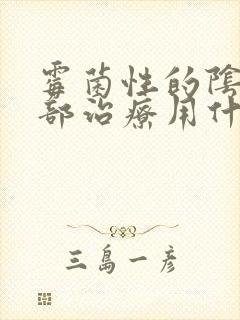 霉菌性的陰
部治療用什
三島一彦